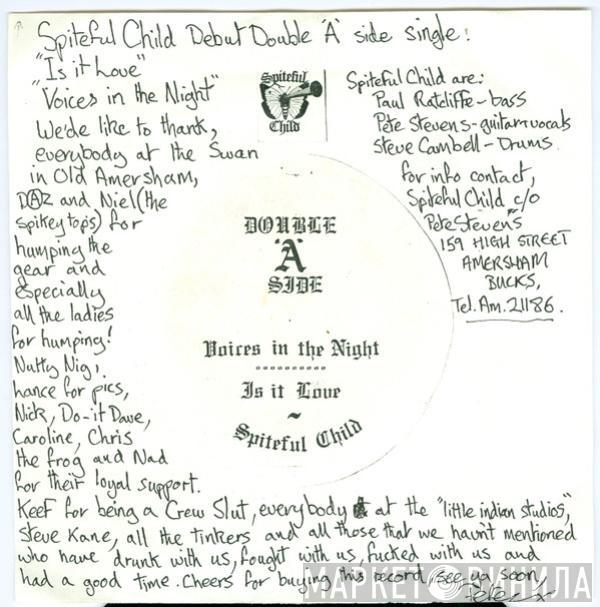 Spiteful Child Debut Double 'A' side single!
"Is it Love"
"Voices in the Night"
We'de like to thank,
everybody at the Swan
in Old Amersham,
DAZ and Niel (the
spikey tops) for
humping the
gear and
especially
all the ladies
for humping!
Nutty Nig,
hance for pics,
Nick, Do-it Dave,
Caroline, Chris
the frog and Nad
for their loyal support.
Keef for being a Crew Slut, everybody at the "little indian studios",
Steve Kane, all the tinkers and all those that we havn't mentioned
who have drunk with us, fought with us, fucked with us and
had a good time. Cheers for buying this record, see ya soon,
Spiteful
Child
Spiteful Child are:
Paul Ratcliffe - bass
Pete Stevens - guitar + vocals
Steve Cambell - Drums.
for info contact,
Spiteful Child c/o
Pete Stevens
159 HIGH STREET
AMERSHAM
BUCKS,
Tel. Am. 21186.
DOUBLE
'A'
SIDE
Voices in the Night
Is it Love
~
Spiteful Child
МАРКЕТ ВИНИЛА